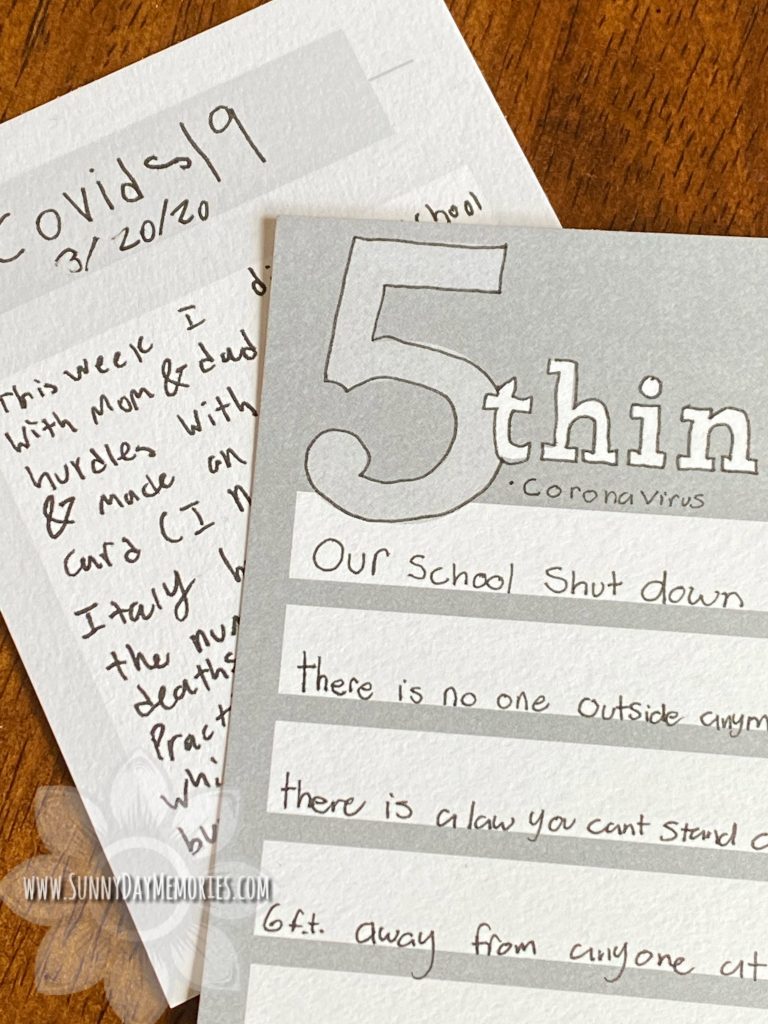 Covids19
3/20/20
school
This week I
with Mom & dad
hurdles with
& made an
card (I
Italy
the
deaths
5 thin
·Corona Virus
Our School Shut down
there is no one outside
there is a law you cant stand
6ft. away from anyone at
www.SunnyDayMemories.com